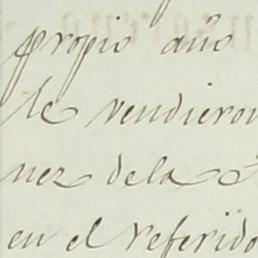 propio año
le vendieron
nez de la C
en el referido